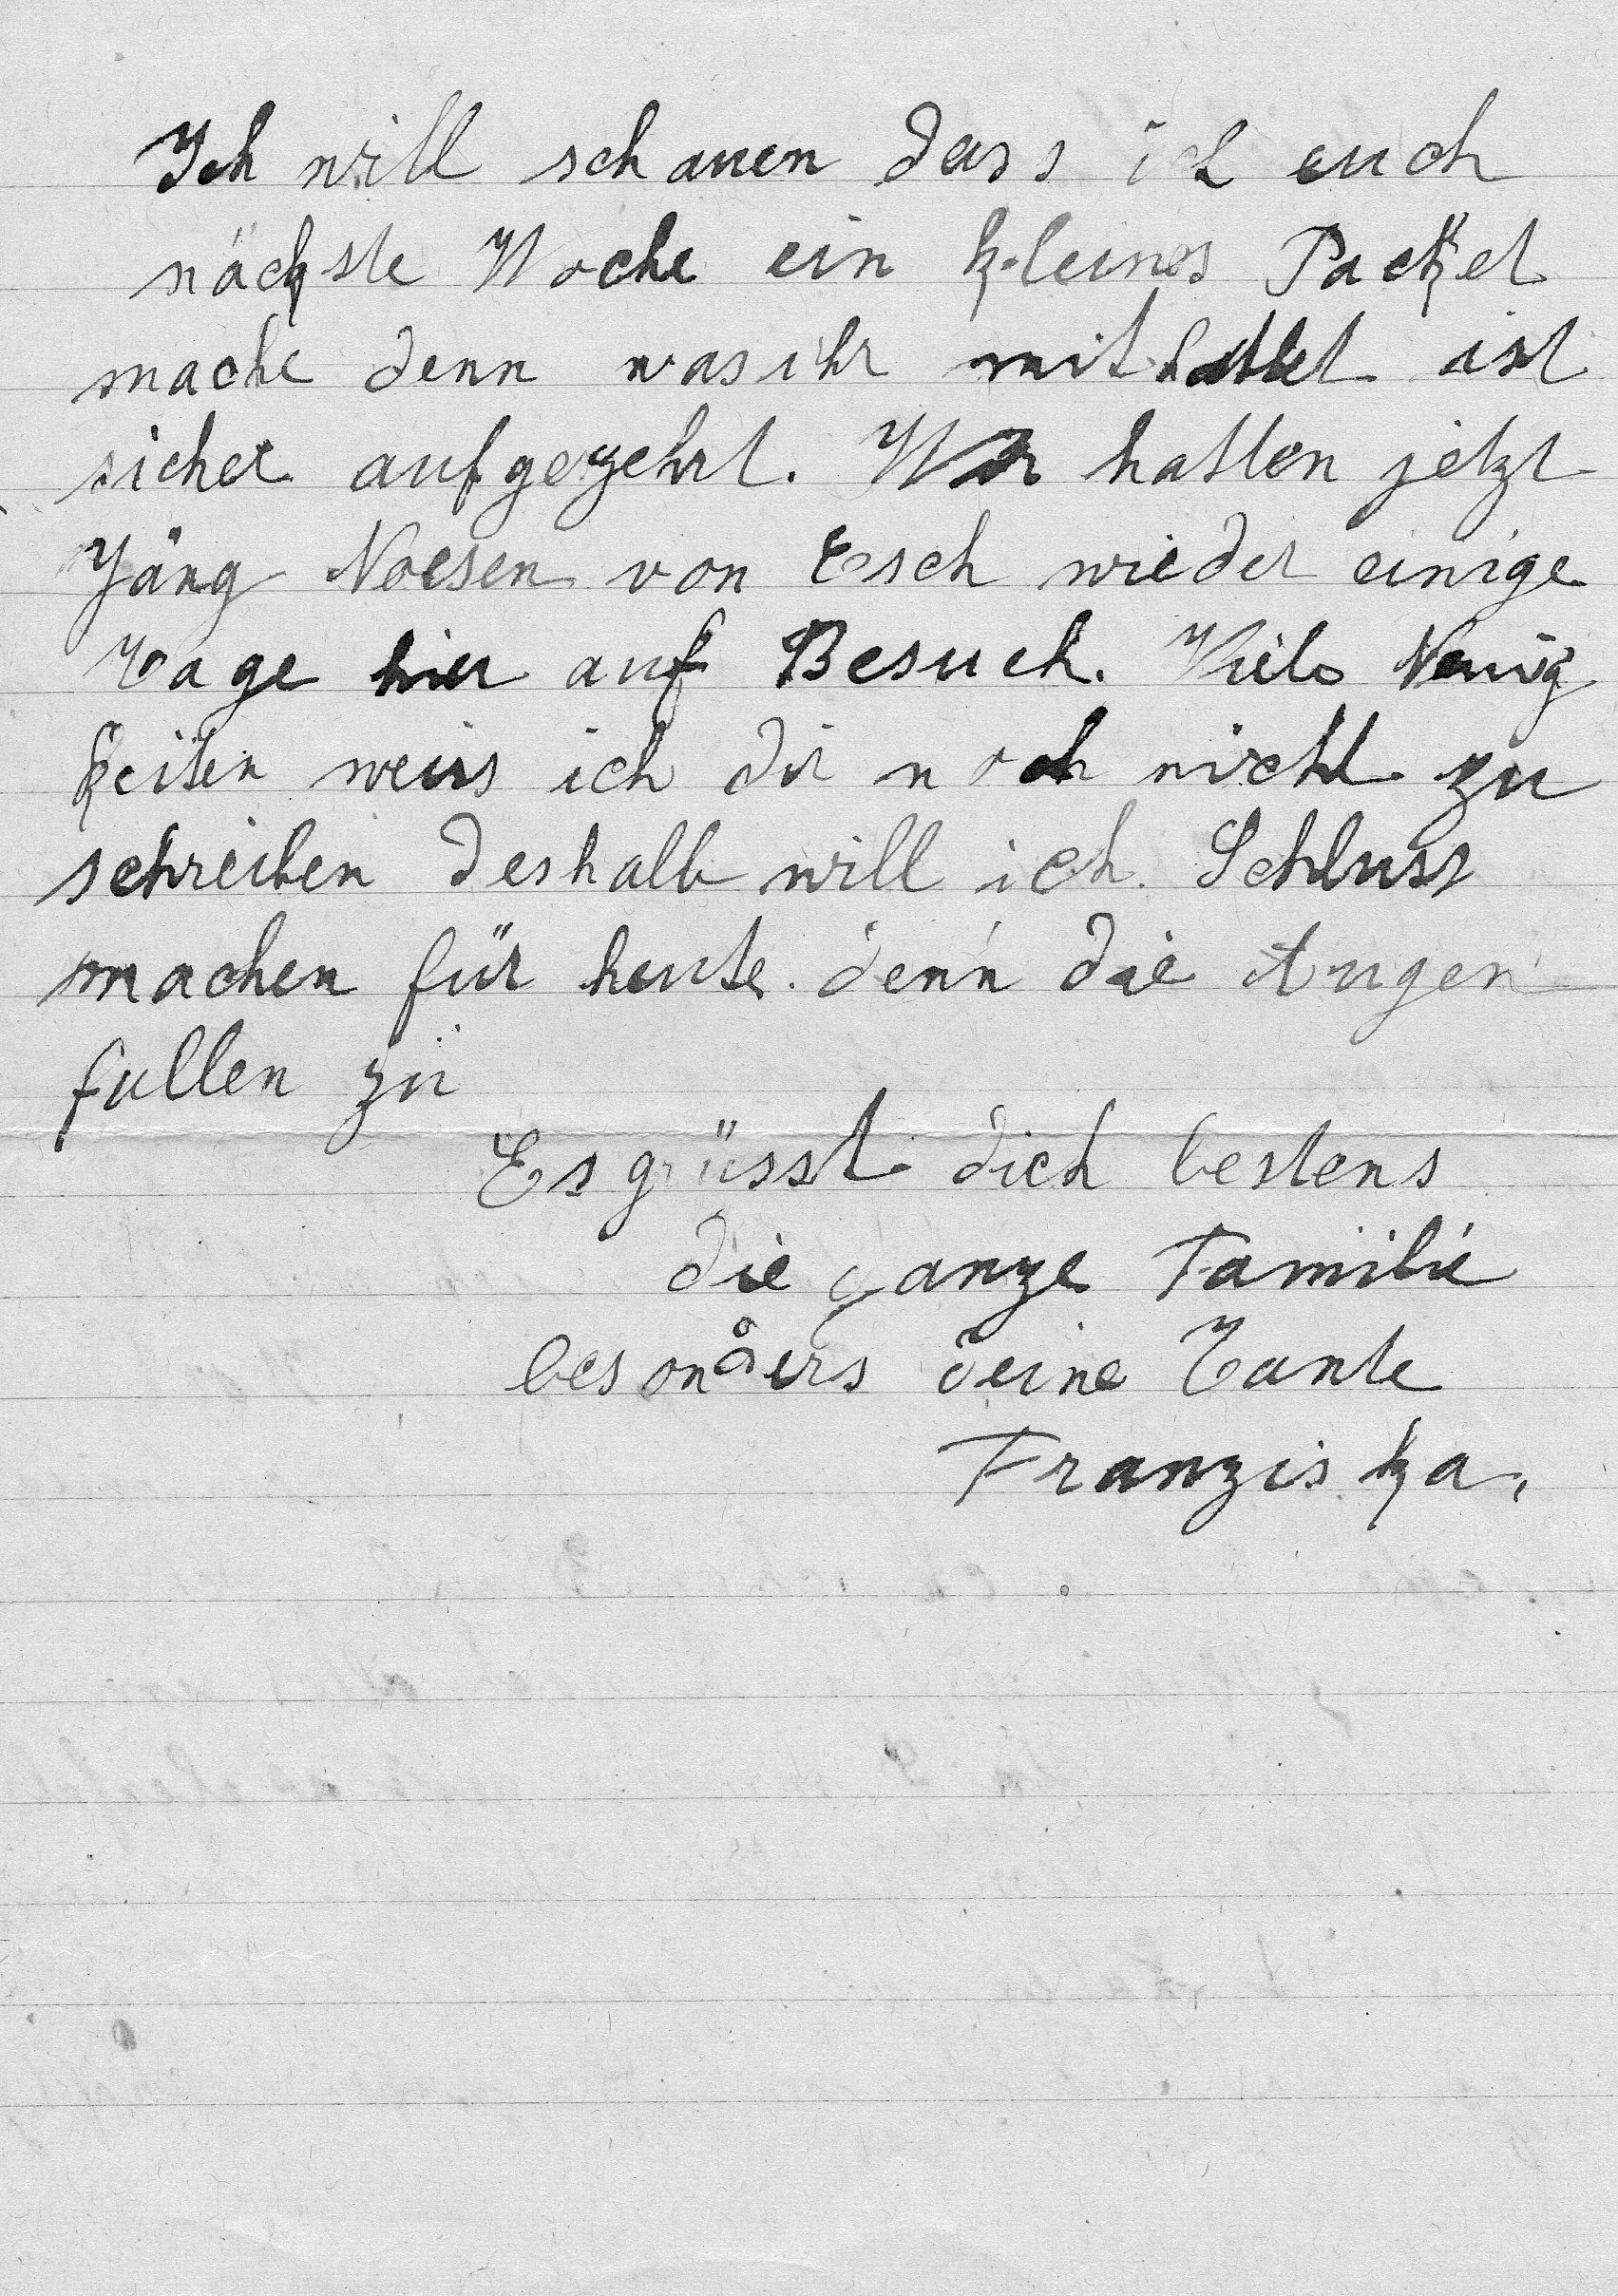 Ich will schauen dass ich euch
nächste Woche ein kleines Packet
mache denn was ihr mit hattet ist
sicher aufgezehrt. Wir hatten jetzt
Jäng Noesen von Esch wieder einige
Tage hier auf Besuch. Viele Neuig
keiten weiss ich dir noch nicht zu
schreiben deshalb will ich Schluss
machen für heute. denn die Augen
fallen zu
Es grüsst dich bestens
die ganze Familie
besonders deine Tante
Franziska,